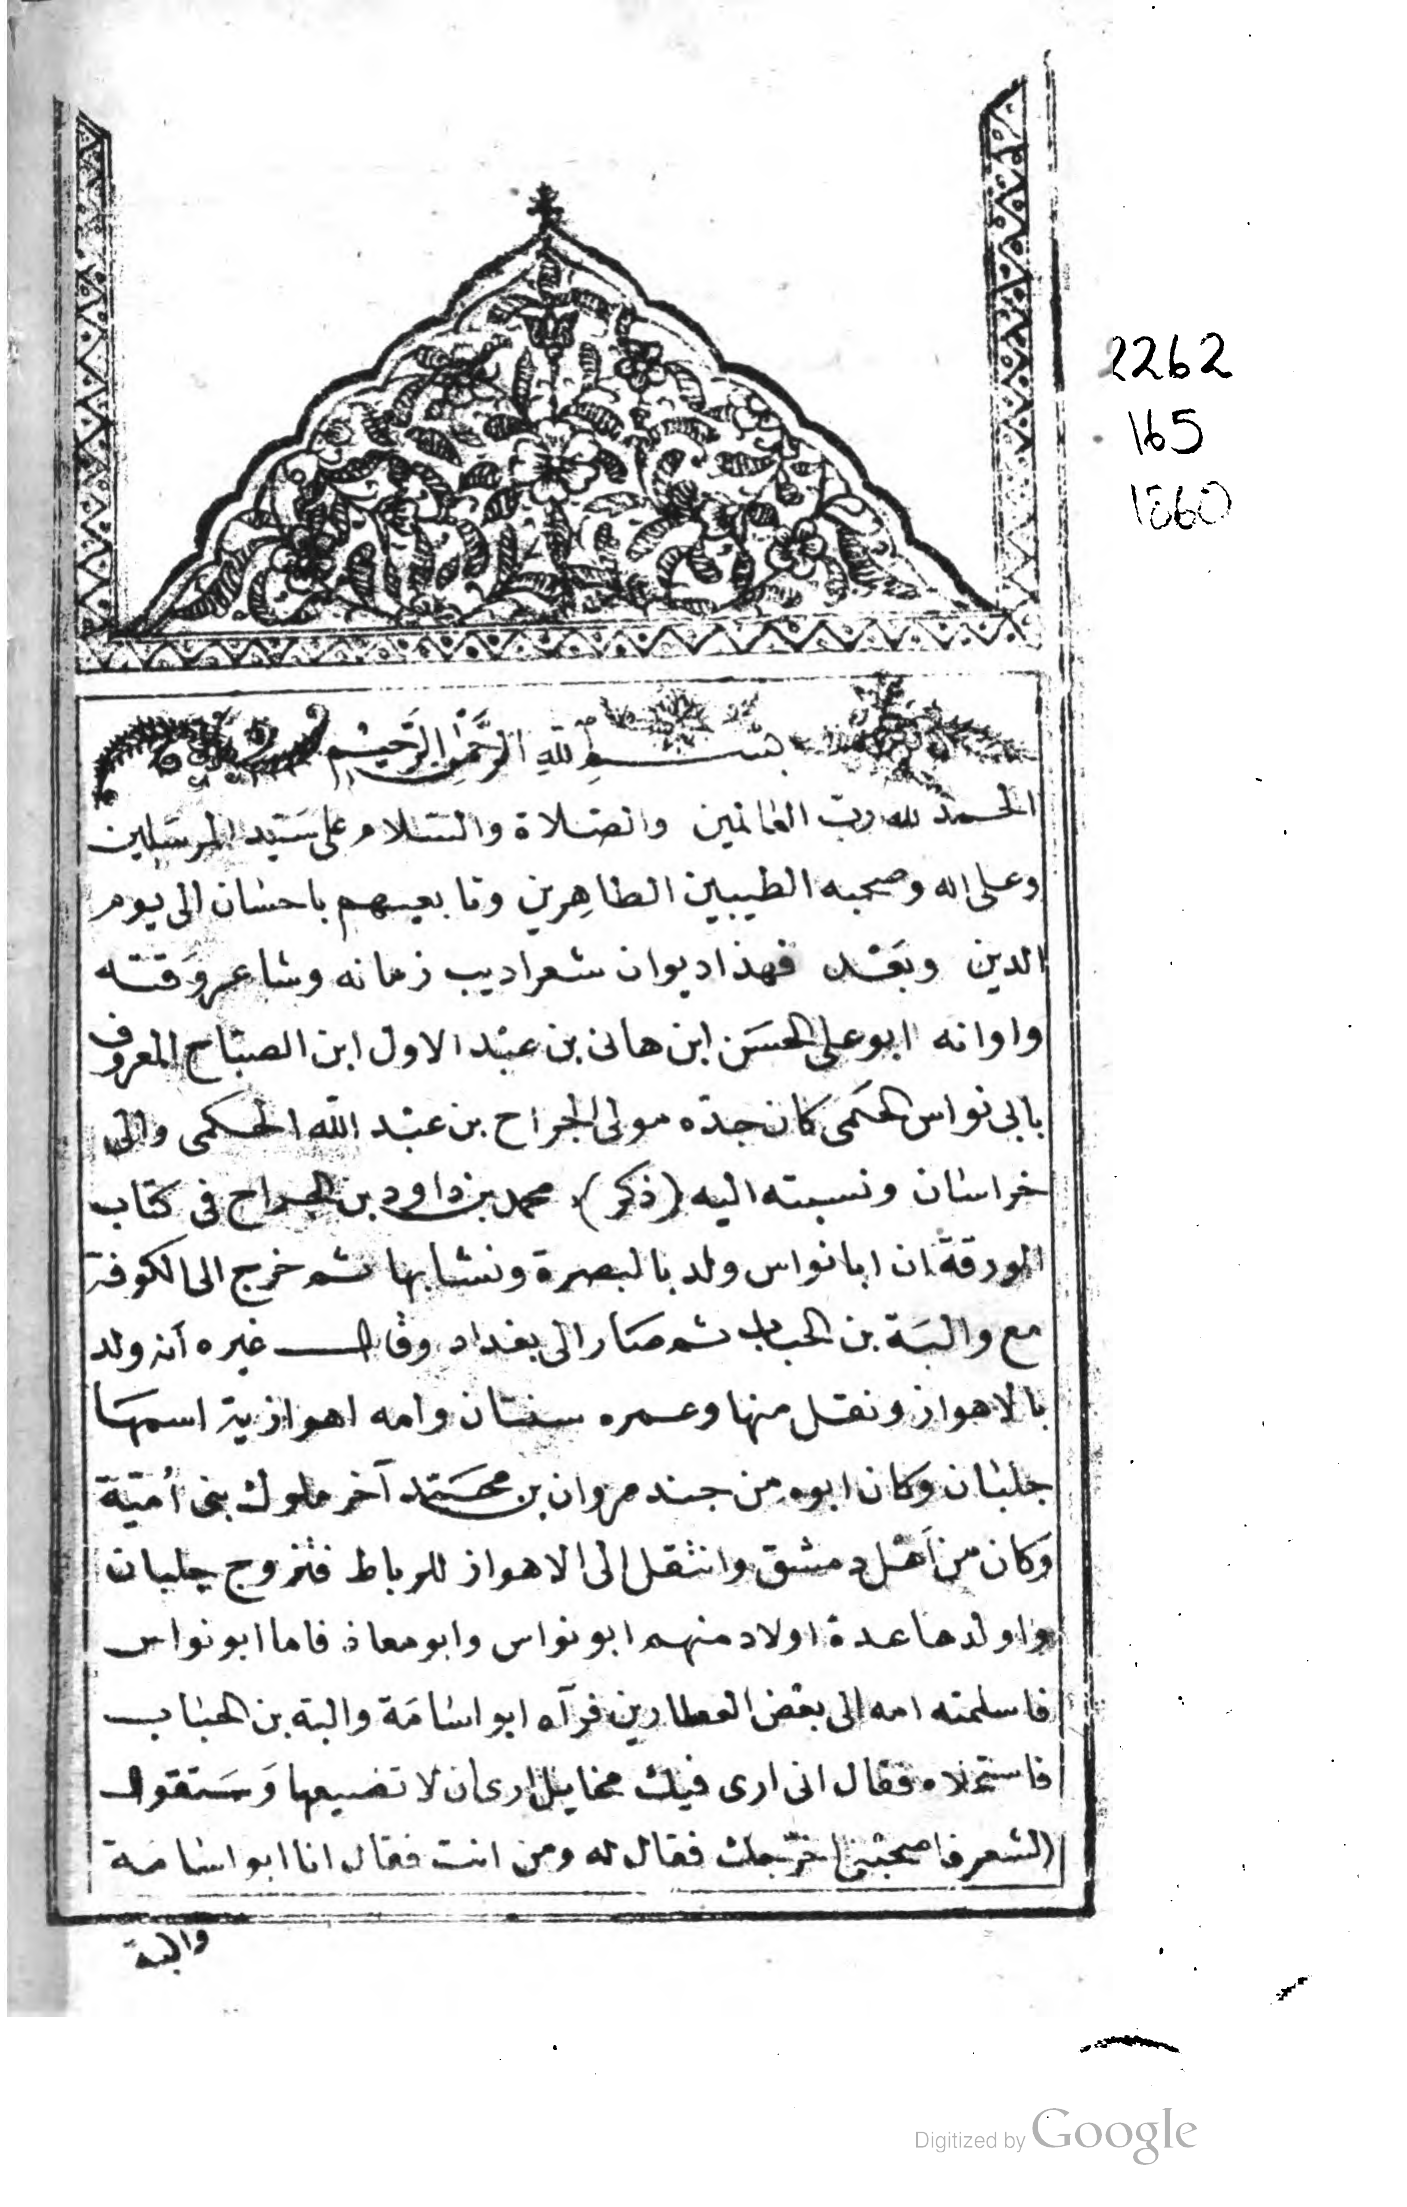 بسم الله الرحمن الرحيم
الحمد لله رب العالمين والصلاة والسلام على سيد المرسلين
وعلى اله وصحبه الطيبين الطاهرين وتابعيهم باحسان الى يوم
الدين وبعد فهذا ديوان شعر اديب زمانه وشاعر وقته
واوانه ابو على الحسن ابن هانى بن عبد الاول ابن الصباح المعروف
بابى نواس الحكمى كان جده مولى الجراح بن عبد الله الحكمى والى
خراسان ونسبته اليه (ذكر) محمد بن داود بن الجراح فى كتاب
الورقة ان ابا نواس ولد بالبصرة ونشابها ثم خرج الى الكوفة
مع والبة بن الحباب ثم صار الى بغداد وقال غيره أنه ولد
بالاهواز ونقل منها وعمره سنتان وامه اهوازية اسمها
جلبان وكان ابوه من جند مروان بن محمد آخر ملوك بنى أمية
وكان من أهل دمشق وانتقل الى الاهواز للرباط فتزوج جلبان
واولدها عدة اولاد منهم ابو نواس وابو معاذ فاما ابو نواس
فاسلمته امه الى بعض العطارين فرآه ابو اسامة والبة بن الحباب
فاستحلاه فقال انى ارى فيك مخايل ارى ان لا تضيعها وستقول
الشعر فاصحبنى اخرّجك فقال له ومن انت فقال انا ابو اسامة
والبة
2262
165
1860
Digitized by Google